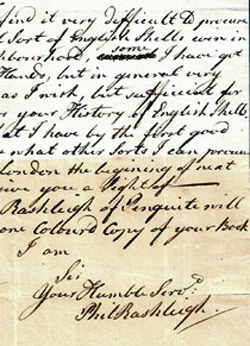 find it very difficult to procure
Sort of English Shells even in
bourhood, some I have got
Hands, but in general very
as I wish, but sufficient for
r your History of English Shells,
at I have by the first good
what other Sorts I can procure
London the begining of next
give you a Sight of
Rashleigh of Penquite will
one Colourd Copy of your Book
I am
Sir
Your Humble Servt.
Phil Rashleigh.